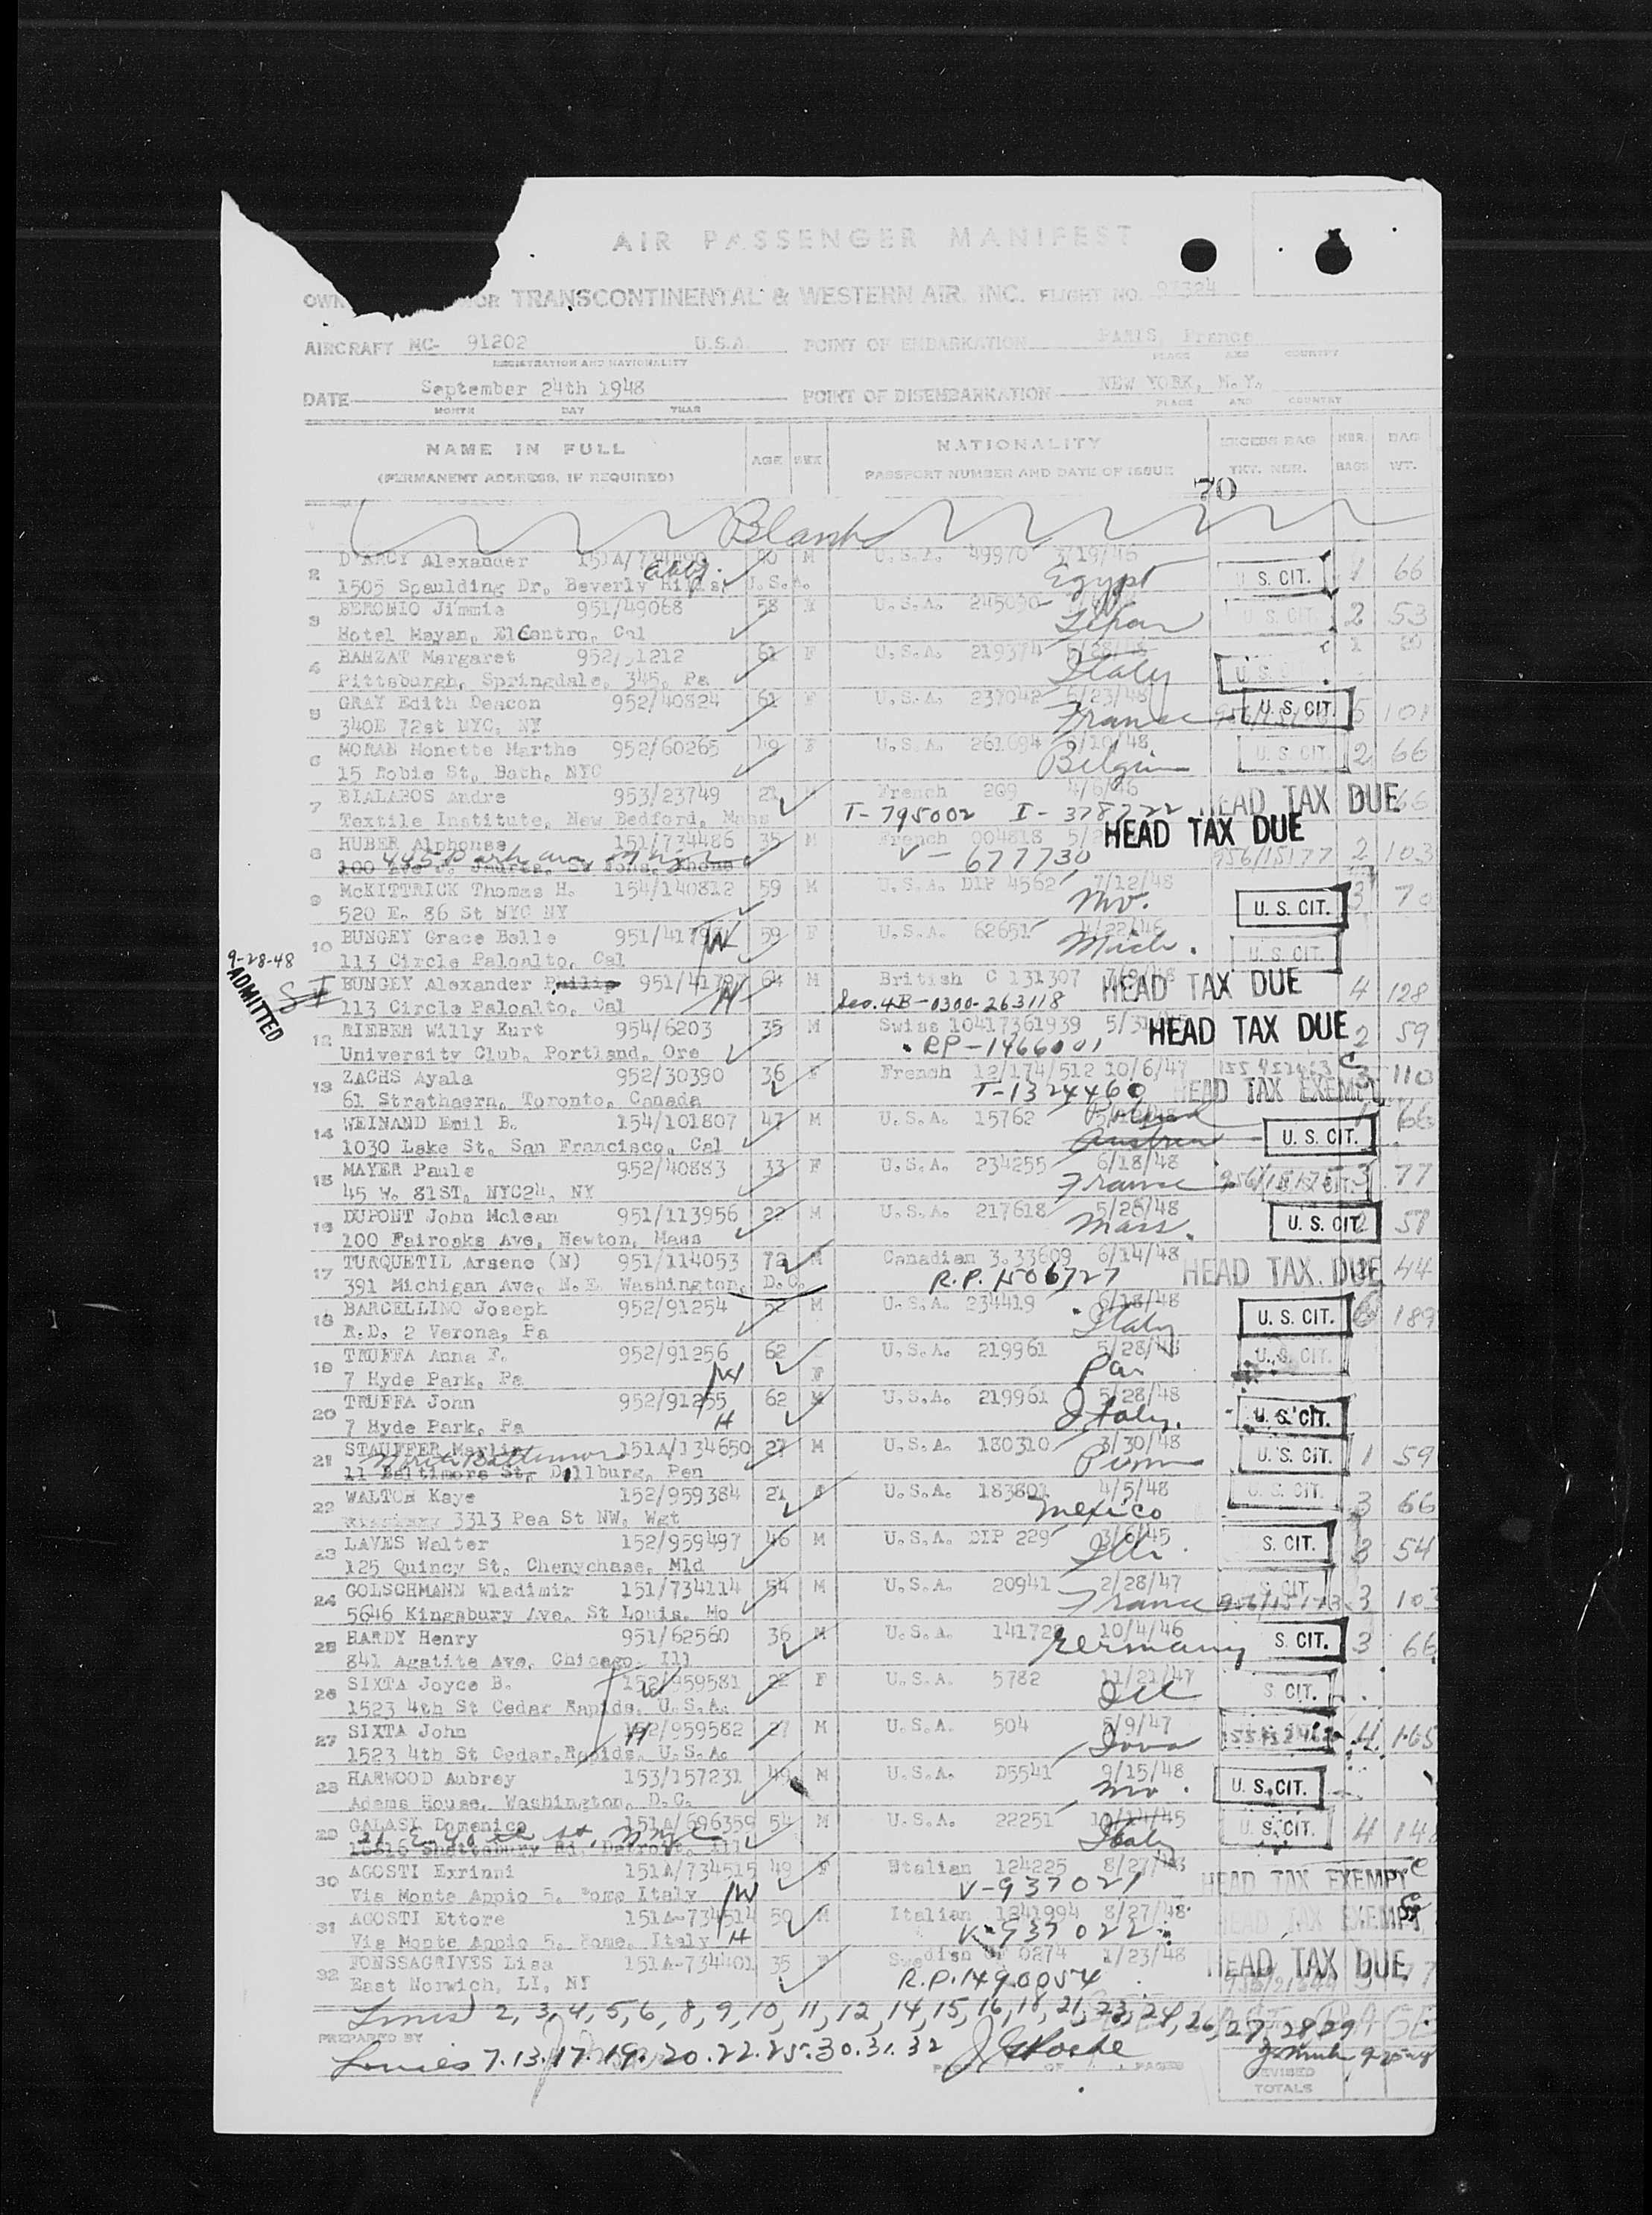 AIR PASSENGER MANIFEST
OR TRANSCONTINENTAL & WESTERN AIR. INC. FLIGHT NO.
AIRCRAFT NC- 91202 U.S.A. POINT OF EMBARKATION PARIS, France
REGISTRATION AND NATIONALITY PLACE AND COUNTRY
DATE September 24th 1948 POINT OF DISEMBARKATION NEW YORK, N.Y.
MONTH DAY YEAR PLACE AND COUNTRY
NAME IN FULL AGE SEX NATIONALITY EXCESS BAG NBR. BAG
(PERMANENT ADDRESS, IF REQUIRED) PASSPORT NUMBER AND DATE OF ISSUE TKT. NBR. BAGS WT.
70
Blank
2 D'ARCY Alexander M U.S.A. 49970 3/19/46 66
1505 Spaulding Dr. Beverly Hills, U.S.A. Egypt U.S. CIT.
3 BERONIO Jimmie 951/49068 58 U.S.A. U.S. CIT. 2 53
Hotel Mayan, ElCentro, Cal
4 BARZAT Margaret 61 F U.S.A. 219374 5/28/48 1
Pittsburgh, Springdale, 345, Pa Italy U.S.
5 GRAY Edith Deacon 952/40824 61 F U.S.A. 237042 6/23/48 U.S. CIT.
340E 72st NYC, NY France
6 MORAN Monette Marthe 952/60265 F U.S.A. U.S. CIT. 2 66
15 Robie St. Bath, NYC Belgium
7 BIALABOS Andre 953/23749 21 French 209 4/6/46 HEAD TAX DUE
Textile Institute, New Bedford, Mass T-795002 I-378222
8 HUBER Alphonse 151/734486 35 M French 004818 HEAD TAX DUE
V-677730 956/15177 2 103
9 McKITTRICK Thomas H. 154/140812 59 M U.S.A. DIP 4562 7/12/48 3 70
520 E. 86 St NYC NY Mo. U.S. CIT.
10 BUNGEY Grace Belle 59 F U.S.A. 62651 4/22/46
113 Circle Paloalto, Cal W Mich. U.S. CIT.
9-28-48 ADMITTED
BUNGEY Alexander 64 M British C 131307 HEAD TAX DUE 4 128
113 Circle Paloalto, Cal H 4B-0300-263118
12 RIEBEN Willy Kurt 954/6203 35 M Swiss 10417361939 HEAD TAX DUE 2 59
University Club, Portland, Ore RP-1466001
13 ZACHS Ayala 952/30390 36 F French 12/174/512 10/6/47 3 110
61 Strathaern, Toronto, Canada T-1324460 HEAD TAX EXEMPT
14 WEINAND Emil B. 154/101807 47 M U.S.A. 15762 Poland 66
1030 Lake St. San Francisco, Cal Austria U.S. CIT.
15 MAYER Paule 952/40883 33 F U.S.A. 234255 6/18/48
45 W. 81ST, NYC24, NY France 956/15175 3 77
16 DUPONT John Mclean 951/113956 22 M U.S.A. 217618 5/28/48 58
100 Fairoaks Ave, Newton, Mass Mass. U.S. CIT.
17 TURQUETIL Arsene (N) 951/114053 72 M Canadian 3.33609 6/14/48 44
391 Michigan Ave, N.E. Washington, D.C. R.P. 1506727 HEAD TAX DUE
18 BARCELLINO Joseph 952/91254 52 M U.S.A. 234419 6/18/48 189
R.D. 2 Verona, Pa Italy U.S. CIT.
19 TRUFFA Anna F. 952/91256 62 U.S.A. 219961 5/28/48 U.S. CIT.
7 Hyde Park, Pa W F Pa
20 TRUFFA John 952/91255 62 M U.S.A. 219961 5/28/48
7 Hyde Park, Pa H Italy. U.S. CIT.
21 STAUFFER Marlin 151A/134650 27 M U.S.A. 180310 3/30/48
11 Baltimore St, Dillburg, Pen Penn U.S. CIT. 1 59
22 WALTON Kaye 152/959384 21 F U.S.A. 183801 4/5/48 U.S. CIT.
3313 Pea St NW, Wgt Mexico 3 66
23 LAVES Walter 152/959497 46 M U.S.A. DIP 229 3/6/45 S. CIT.
125 Quincy St. Chenychase, Mld Ill. 3 54
24 GOLSCHMANN Wladimir 151/734114 54 M U.S.A. 20941 2/28/47 S. CIT.
5646 Kingsbury Ave. St Louis, Mo France 3 103
25 HARDY Henry 951/62560 36 M U.S.A. 10/4/46 S. CIT. 3 66
841 Agatite Ave, Chicago, Ill Germany
26 SIXTA Joyce B. 152/959581 22 F U.S.A. 5782 11/21/47 S. CIT.
1523 4th St Cedar Rapids, U.S.A. W Ill
27 SIXTA John 152/959582 27 M U.S.A. 504 5/9/47
1523 4th St Cedar,Rapids, U.S.A. H Iowa 4 165
28 HARWOOD Aubrey 153/157231 M U.S.A. D5541 9/15/48
Adams House, Washington, D.C. Mo. U.S. CIT.
29 GALASI Domenico 151A/696359 54 M U.S.A. 22251 10/14/45
Italy U.S. CIT. 4
30 AGOSTI Exrinni 151A/734515 49 F Etalian 124225 HEAD TAX EXEMPT
Via Monte Appio 5. Rome Italy W V-937021
31 AGOSTI Ettore 151A-734514 50 M Italian 1841994 8/27/48 HEAD TAX EXEMPT
Via Monte Appio 5. Rome, Italy H V-937022
32 FONSSAGRIVES Lisa 151A-734401 35 F Swedish 0274 1/23/48 HEAD TAX DUE
East Norwich, LI, NY R.P. 1490054
Lines 2, 3, 4, 5, 6, 8, 9, 10, 11, 12, 14, 15, 16, 18, 21, 23, 24, 26, 27, 28, 29
PREPARED BY
Lines 7.13.17.19.20.22.25.30.31.32
OF PAGES
REVISED TOTALS